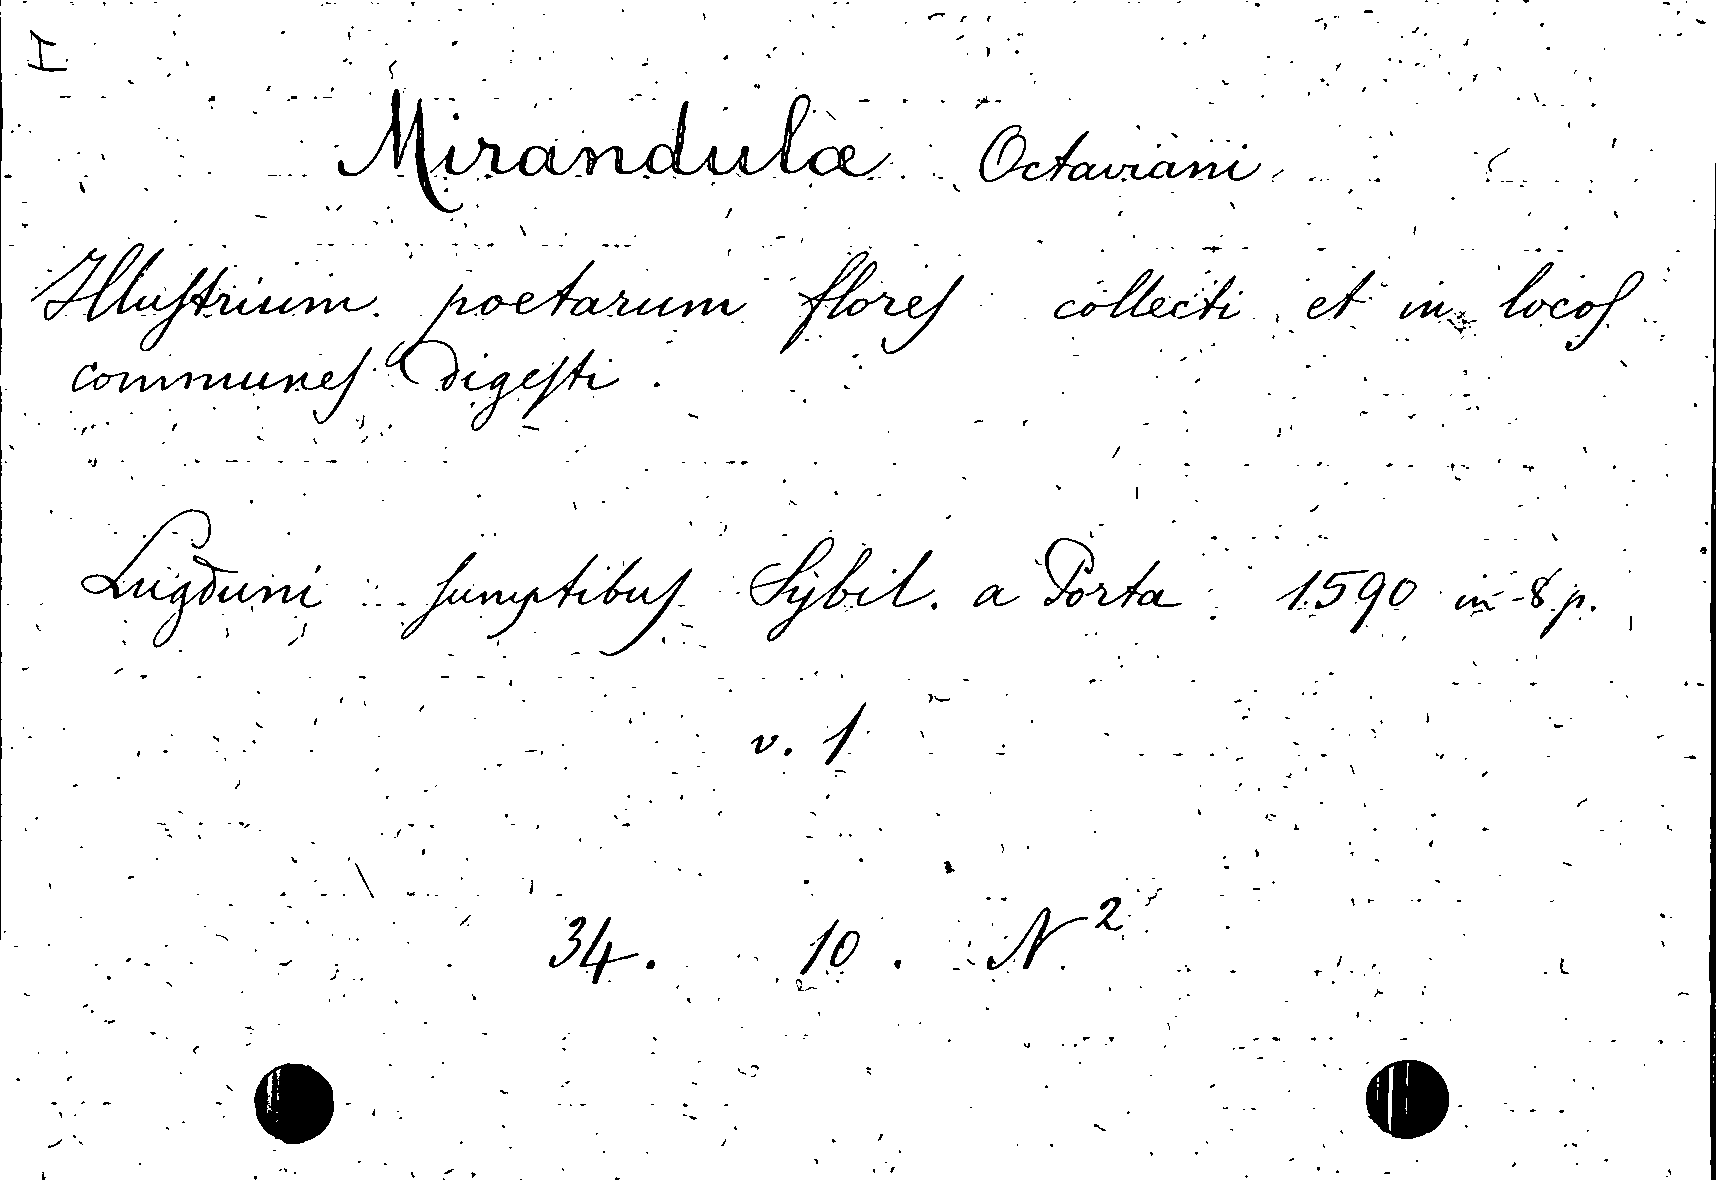 I
Mirandulæ Octaviani
Illuſtrium poetarum floreſ collecti et in locoſ
communeſ digeſti.
Lugduni ſumptibuſ Sybil. a Porta 1590 in-8 p.
v. 1
34. 10. N²